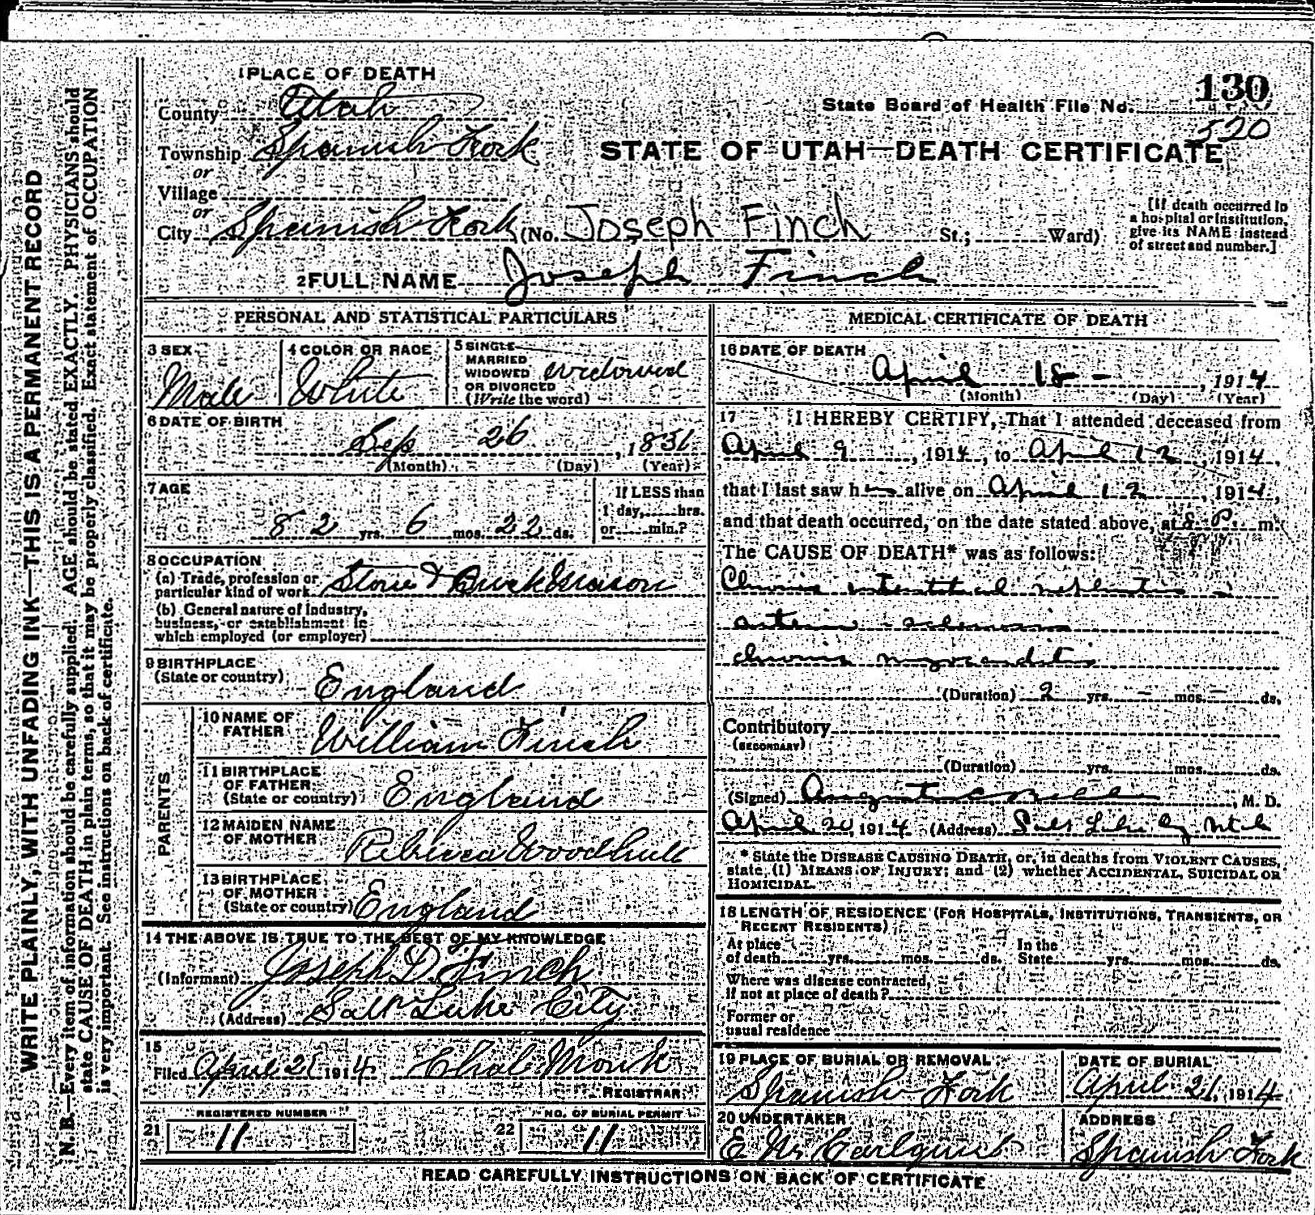 1 PLACE OF DEATH
130
State Board of Health File No.
520
County Utah
Township Spanish Fork
or
Village
or
City Spanish Fork (No. Joseph Finch St.; Ward)
STATE OF UTAH—DEATH CERTIFICATE
[If death occurred in
a hospital or institution,
give its NAME instead
of street and number.]
2 FULL NAME Joseph Finch
PERSONAL AND STATISTICAL PARTICULARS
3 SEX
Male
4 COLOR OR RACE
White
5 SINGLE
MARRIED
WIDOWED
OR DIVORCED
(Write the word)
widowed
6 DATE OF BIRTH
Sep 26, 1831
(Month) (Day) (Year)
7 AGE
82 yrs. 6 mos. 22 ds.
If LESS than
1 day, hrs.
or min.?
8 OCCUPATION
(a) Trade, profession or
particular kind of work Stone & Brick Mason
(b) General nature of industry,
business, or establishment in
which employed (or employer)
9 BIRTHPLACE
(State or country) England
PARENTS
10 NAME OF
FATHER William Finch
11 BIRTHPLACE
OF FATHER
(State or country) England
12 MAIDEN NAME
OF MOTHER Rebecca Woodhull
13 BIRTHPLACE
OF MOTHER
(State or country) England
14 THE ABOVE IS TRUE TO THE BEST OF MY KNOWLEDGE
(Informant) Joseph D. Finch
(Address) Salt Lake City
15
Filed April 21 1914 Chas Monk
REGISTRAR
REGISTERED NUMBER
21 11
NO. OF BURIAL PERMIT
22 11
MEDICAL CERTIFICATE OF DEATH
16 DATE OF DEATH
April 18 - , 1914
(Month) (Day) (Year)
17 I HEREBY CERTIFY, That I attended deceased from
April 9, 1914, to April 12, 1914,
that I last saw h alive on April 12, 1914,
and that death occurred, on the date stated above, at 8 P. m.
The CAUSE OF DEATH* was as follows:
Chronic interstitial nephritis
arterio sclerosis
chronic myocarditis
(Duration) 2 yrs. - mos. - ds.
Contributory
(SECONDARY)
(Duration) yrs. mos. ds.
(Signed) , M. D.
April 20, 1914 (Address) Salt Lake City Utah
* State the DISEASE CAUSING DEATH, or, in deaths from VIOLENT CAUSES,
state, (1) MEANS OF INJURY; and (2) whether ACCIDENTAL, SUICIDAL OR
HOMICIDAL.
18 LENGTH OF RESIDENCE (FOR HOSPITALS, INSTITUTIONS, TRANSIENTS, OR
RECENT RESIDENTS)
At place
of death yrs. mos. ds.
In the
State yrs. mos. ds.
Where was disease contracted,
if not at place of death?
Former or
usual residence
19 PLACE OF BURIAL OR REMOVAL
Spanish Fork
DATE OF BURIAL
April 21, 1914
20 UNDERTAKER
ADDRESS
Spanish Fork
READ CAREFULLY INSTRUCTIONS ON BACK OF CERTIFICATE
WRITE PLAINLY, WITH UNFADING INK—THIS IS A PERMANENT RECORD
N. B.—Every item of information should be carefully supplied. AGE should be stated EXACTLY. PHYSICIANS should
state CAUSE OF DEATH in plain terms, so that it may be properly classified. Exact statement of OCCUPATION
is very important. See instructions on back of certificate.